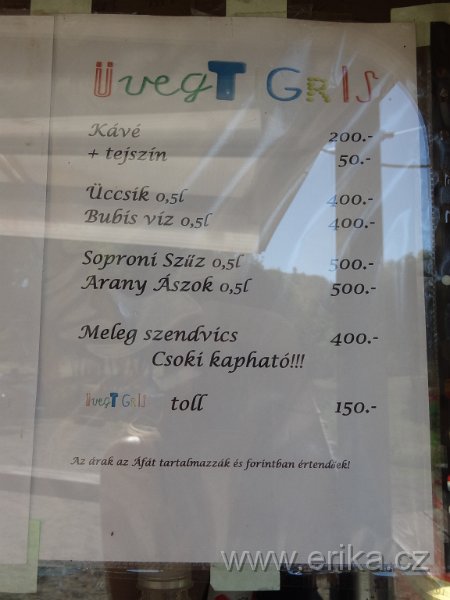 ÜvegT GrIS
Kávé 200.-
+ tejszín 50.-
Üccsik 0,5l 400.-
Bubis víz 0,5l 400.-
Soproni Szűz 0,5l 500.-
Arany Ászok 0,5l 500.-
Meleg szendvics 400.-
Csoki kapható!!!
ÜvegT GrIS toll 150.-
Az árak az Áfát tartalmazzák és forintban értendőek!
www.erika.cz